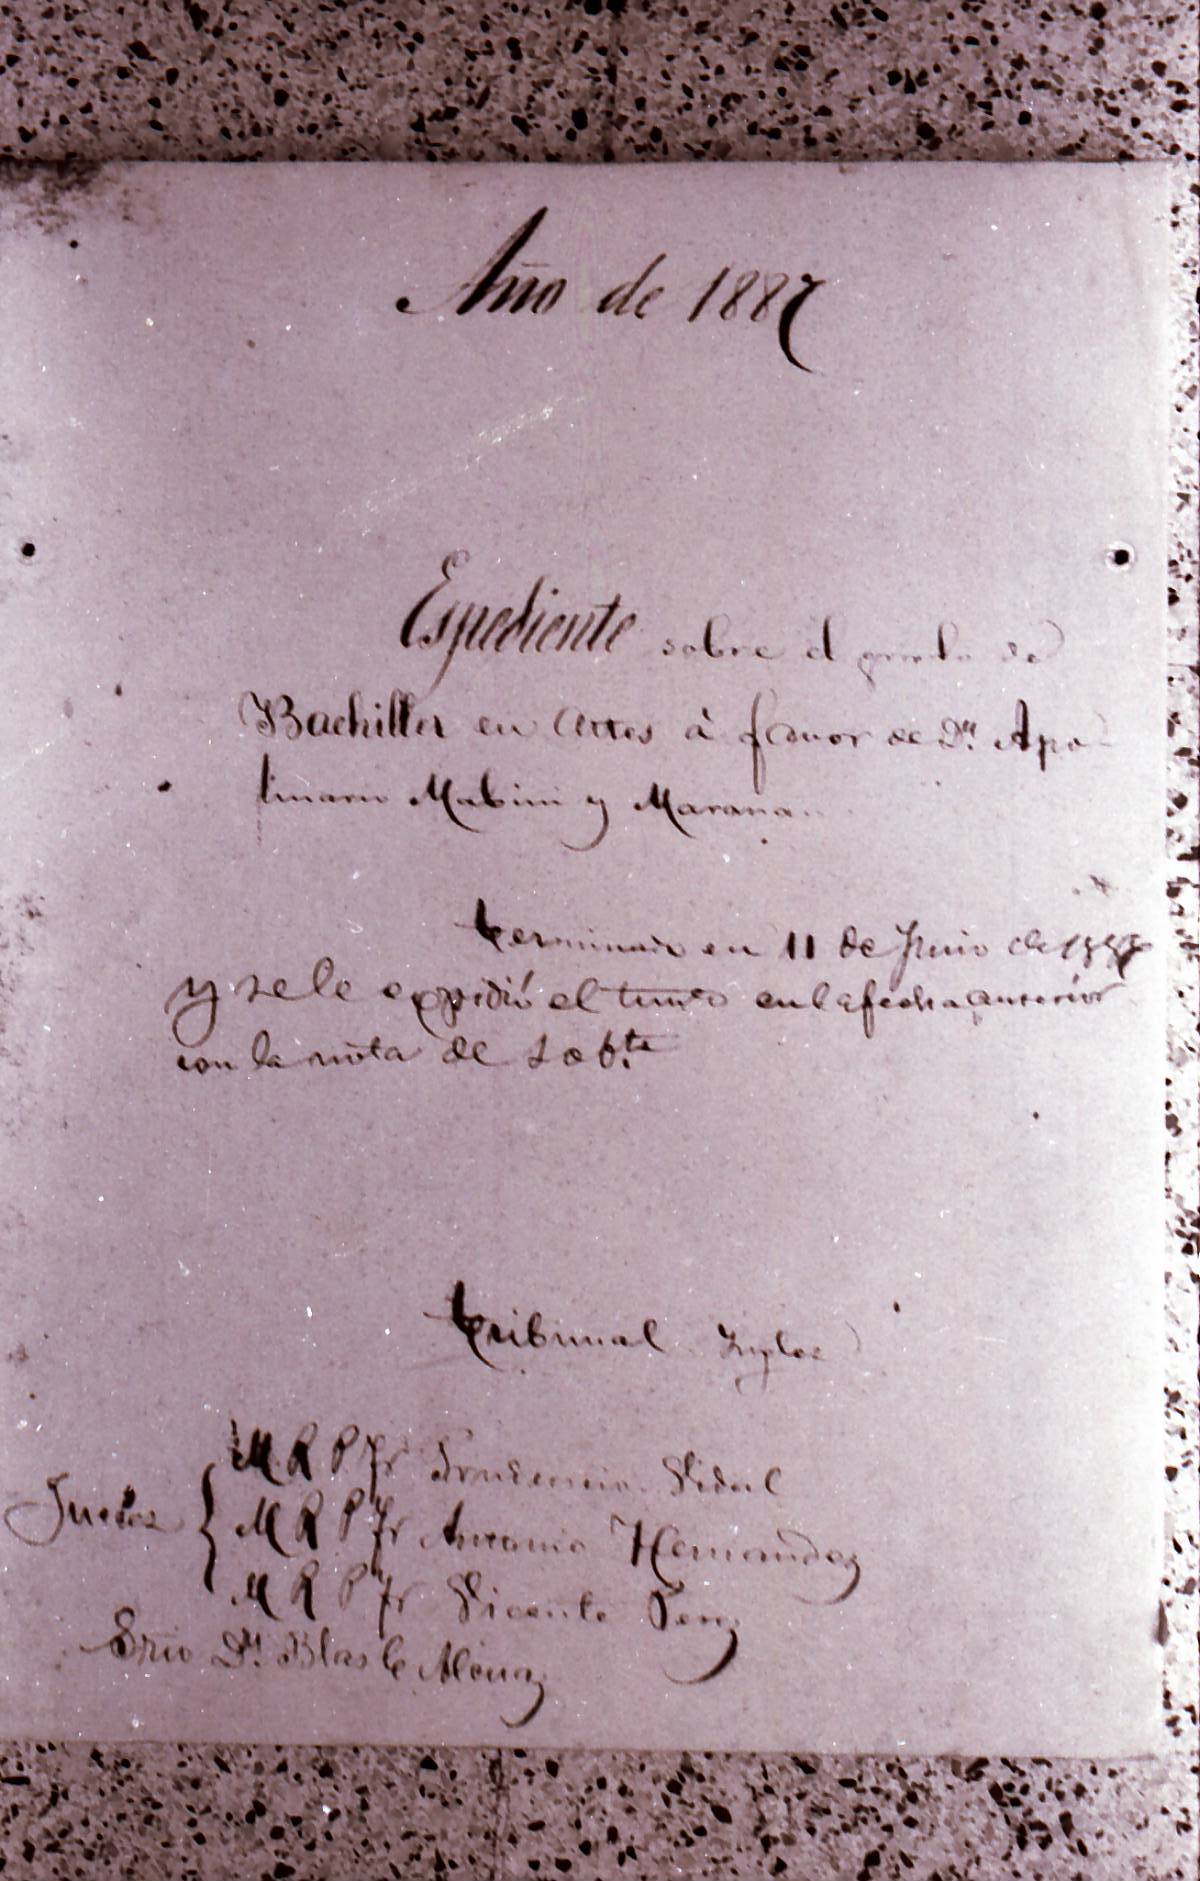 Año de 1887
Espediente sobre el grado de
Bachiller en Artes á favor de Dn. Apo-
linario Mabini y Maranan.
terminado en 11 de Junio de 1887
y se le expidió el titulo en la fecha anterior
con la nota de Sobte
tribunal
M. R. P. Fr Prudencio Vidal
Jueces { M R P Fr Antonio Hernandez
M R P Fr Vicente
Srio Dn. Blas C Alcuaz